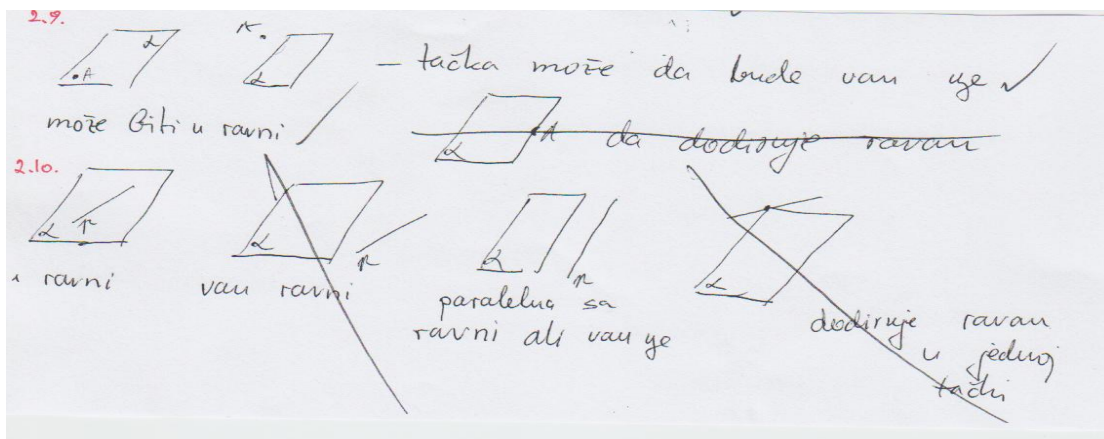 2.9.
A α A. α – tačka može da bude van nje ✓
može biti u ravni
α A da dodiruje ravan
2.10.
α p α p α p α
u ravni van ravni paralelna sa ravni ali van nje
dodiruje ravan u jednoj tački